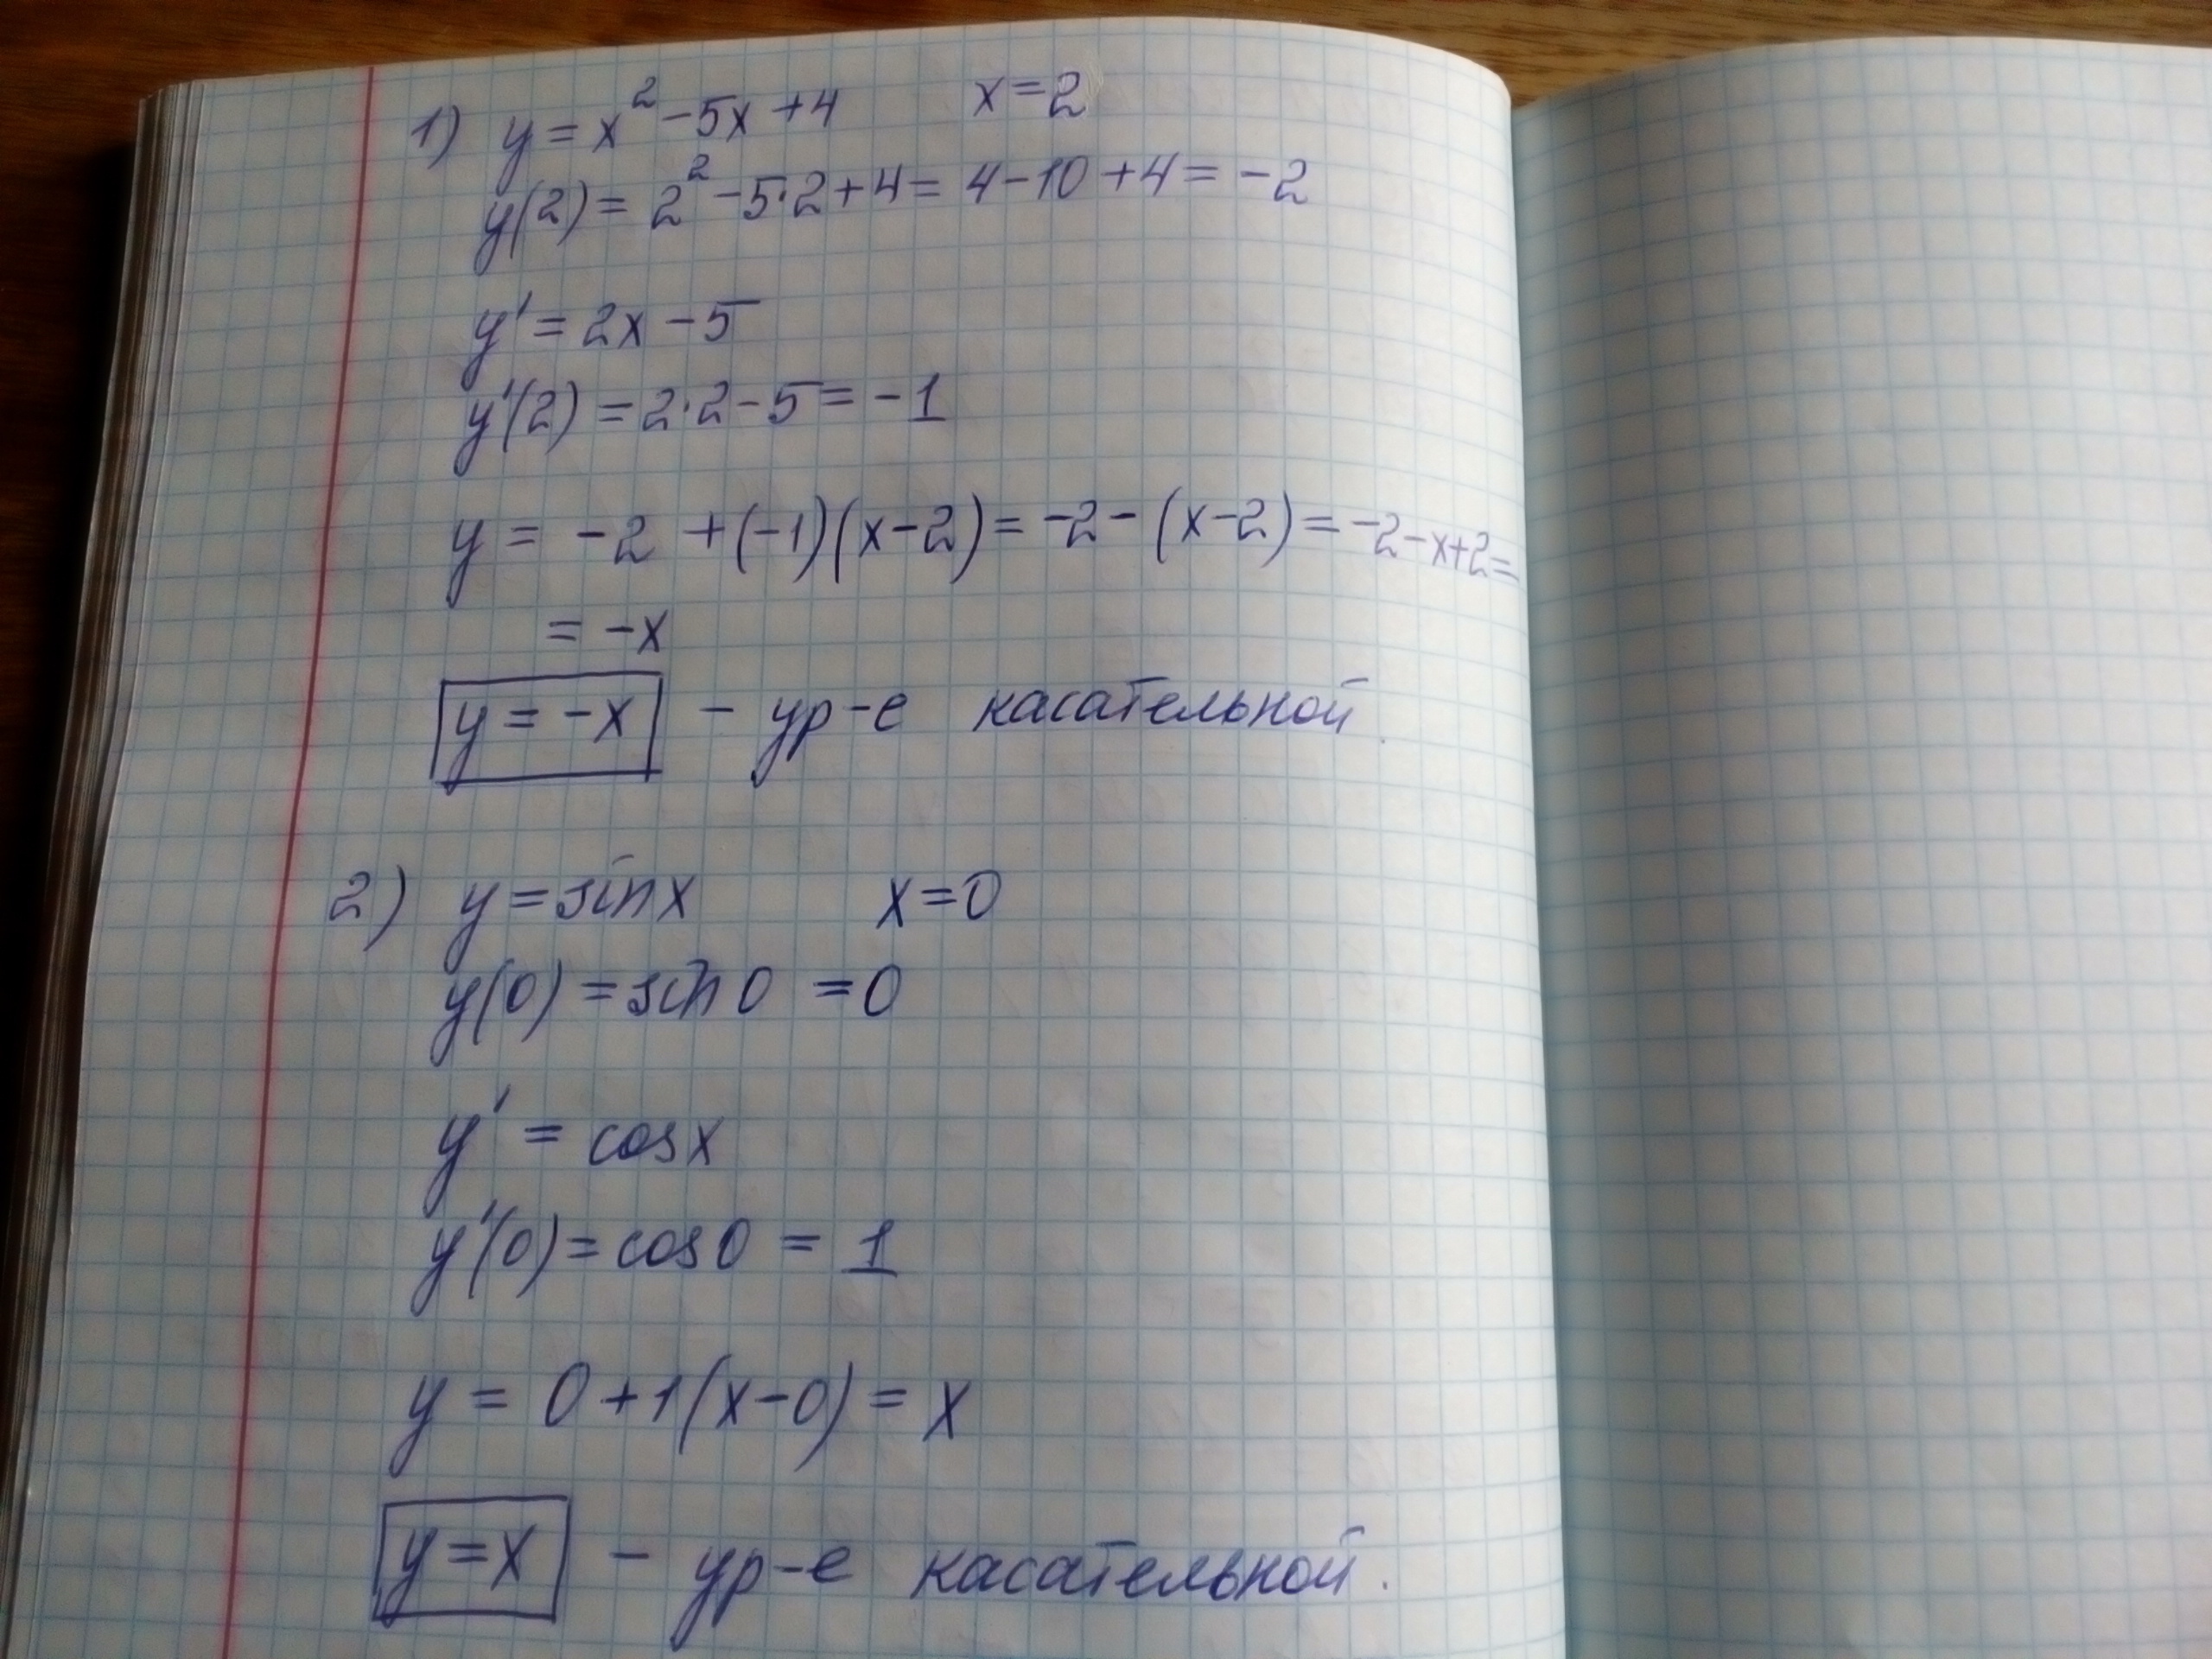 1) y = x² - 5x + 4 x = 2
y(2) = 2² - 5·2 + 4 = 4 - 10 + 4 = -2
y' = 2x - 5
y'(2) = 2·2 - 5 = -1
y = -2 + (-1)(x - 2) = -2 - (x - 2) = -2 - x + 2 =
= -x
y = -x - ур-е касательной.
2) y = sin x x = 0
y(0) = sin 0 = 0
y' = cos x
y'(0) = cos 0 = 1
y = 0 + 1(x - 0) = x
y = x - ур-е касательной.